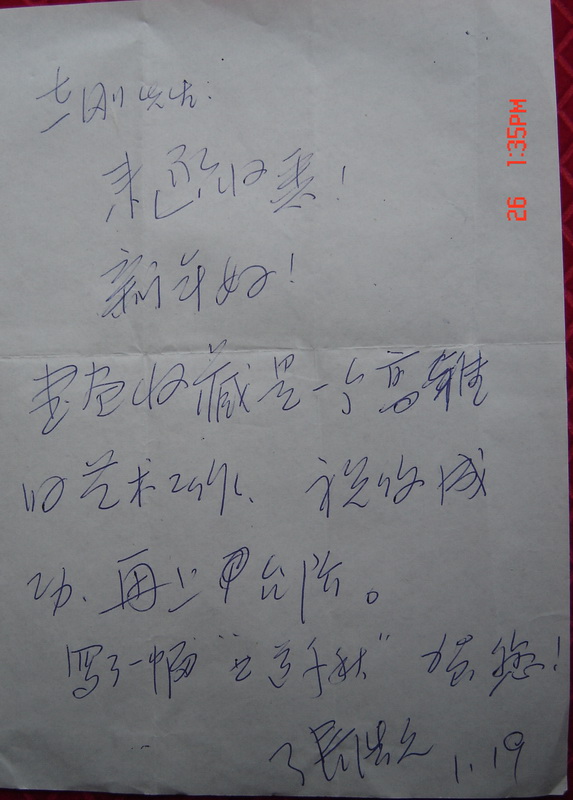 刚先生:
来函收悉!
新年好!
书画收藏是一个高雅
的艺术工作、祝你成
功、再上台阶。
写了一幅"千秋"贺您!
张浩元 1.19
26 1:35PM